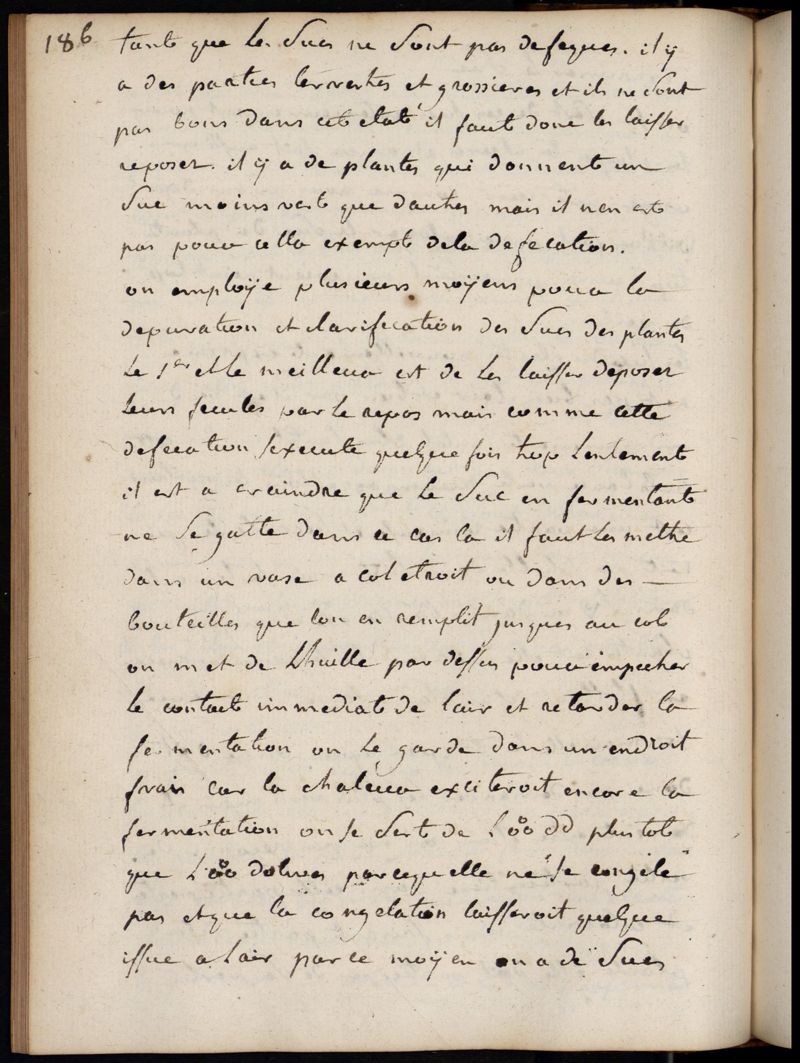 186
tant que les Sucs ne Sont pas defeques. il ÿ
a des parties terrestres et grossieres et ils ne Sont
pas bons dans cet etat il faut donc les laisser
reposer. il ÿ a de plantes qui donnent un
Suc moins vert que dautres mais il n'en est
pas pour cella exempt dela defecation.
on employe plusieurs moÿens pour la
depuration et clarification des Sucs des plantes
Le 1er et le meilleur est de les laisser deposer
leurs fecules par le repos mais comme cette
defecation s'execute quelque fois trop lentement
il est a craindre que le Suc en fermentant
ne Se gatte dans ce cas la il faut les mettre
dans un vase a col etroit ou dans des —
bouteilles que lon en remplit jusques au col
on met de Lhuille par dessus pour empecher
le contact immediat de lair et retarder la
fermentation on le garde dans un endroit
frais car la chaleur exciteroit encore la
fermentation on se Sert de L dd plustot
que L dolives parcequelle ne se congele
pas et que la congelation laisseroit quelque
issue a lair par ce moÿen on a de Sucs